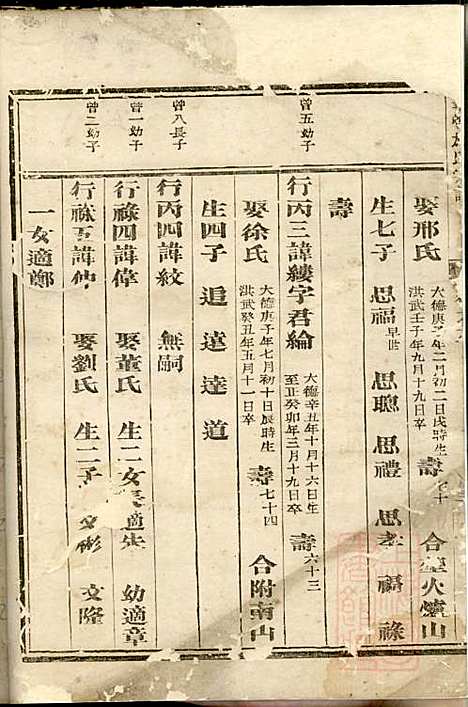 娶邢氏 大德庚子年二月初二日戌時生 洪武壬子年九月十九日卒 壽七十 合塟火燒山
生七子 思福早世 思聰 思禮 思孝 福 祿
壽
曾五幼子
行丙三諱縷字君綸 大德辛丑年十月十六日生 至正癸卯年三月十九日卒 壽六十三
娶徐氏 大德庚子年七月初十日辰時生 洪武癸丑年五月十一日卒 壽七十四 合附南山
生四子 追 遠 達 道
曾八長子
行丙四諱紋 無嗣
曾一幼子
行祿四諱偉 娶董氏 生二女 長適 幼適章
曾二幼子
行祿五諱仲 娶劉氏 生二子 文彬 文隆
一女適鄭